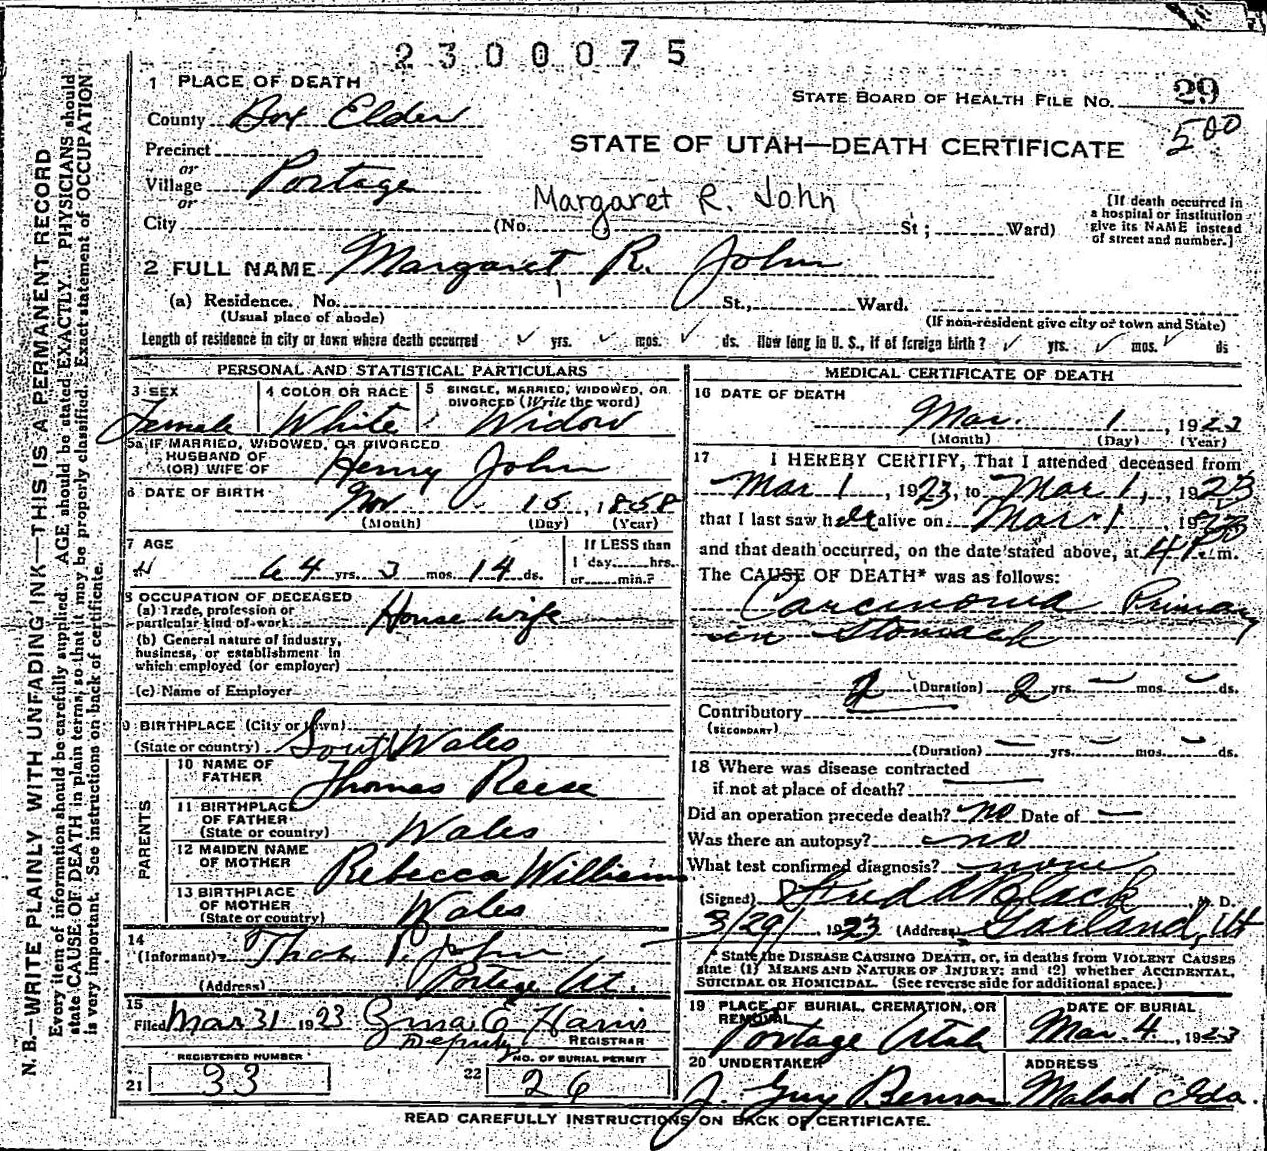 2300075
1 PLACE OF DEATH
STATE BOARD OF HEALTH FILE NO. 29
County Box Elder
500
STATE OF UTAH—DEATH CERTIFICATE
Precinct
or
Village Portage
or
Margaret R. John
City (No. St.; Ward)
[If death occurred in
a hospital or institution
give its NAME instead
of street and number.]
2 FULL NAME Margaret R. John
(a) Residence. No. St., Ward.
(Usual place of abode) (If non-resident give city or town and State)
Length of residence in city or town where death occurred ✓ yrs. ✓ mos. ✓ ds. How long in U. S., if of foreign birth? ✓ yrs. ✓ mos. ✓ ds
PERSONAL AND STATISTICAL PARTICULARS
3 SEX
Female
4 COLOR OR RACE
White
5 SINGLE, MARRIED, WIDOWED, OR
DIVORCED (Write the word)
Widow
5a IF MARRIED, WIDOWED, OR DIVORCED
HUSBAND OF
(OR) WIFE OF Henry John
6 DATE OF BIRTH
Nov 15, 1858
(Month) (Day) (Year)
7 AGE
64 yrs. 3 mos. 14 ds.
If LESS than
1 day hrs.
or min.?
8 OCCUPATION OF DECEASED
(a) Trade, profession or
particular kind of work House wife
(b) General nature of industry,
business, or establishment in
which employed (or employer)
(c) Name of Employer
9 BIRTHPLACE (City or town)
(State or country) South Wales
PARENTS
10 NAME OF
FATHER Thomas Reese
11 BIRTHPLACE
OF FATHER
(State or country) Wales
12 MAIDEN NAME
OF MOTHER Rebecca Williams
13 BIRTHPLACE
OF MOTHER
(State or country) Wales
14
(Informant) Thos. P. John
(Address) Portage Ut.
15
Filed Mar 31 1923 Zina E Harris
Deputy REGISTRAR
REGISTERED NUMBER
21 33
NO. OF BURIAL PERMIT
22 26
MEDICAL CERTIFICATE OF DEATH
16 DATE OF DEATH
Mar. 1, 1923
(Month) (Day) (Year)
17 I HEREBY CERTIFY, That I attended deceased from
Mar 1, 1923, to Mar 1, 1923
that I last saw her alive on Mar 1 1923
and that death occurred, on the date stated above, at 4 P. m.
The CAUSE OF DEATH* was as follows:
Carcinoma Primary
in Stomach
2 (Duration) 2 yrs. — mos. — ds.
Contributory
(SECONDARY)
(Duration) — yrs. — mos. — ds.
18 Where was disease contracted
if not at place of death?
Did an operation precede death? no Date of —
Was there an autopsy? no
What test confirmed diagnosis? none
(Signed) Fred A Black, M. D.
3/29/, 1923 (Address) Garland, Ut
* State the DISEASE CAUSING DEATH, or, in deaths from VIOLENT CAUSES
state (1) MEANS AND NATURE OF INJURY; and (2) whether ACCIDENTAL,
SUICIDAL OR HOMICIDAL. (See reverse side for additional space.)
19 PLACE OF BURIAL, CREMATION, OR
REMOVAL
Portage Utah
DATE OF BURIAL
Mar. 4, 1923
20 UNDERTAKER
J. Guy Benson
ADDRESS
Malad Ida.
READ CAREFULLY INSTRUCTIONS ON BACK OF CERTIFICATE.
N. B.—WRITE PLAINLY WITH UNFADING INK—THIS IS A PERMANENT RECORD
Every item of information should be carefully supplied. AGE should be stated EXACTLY. PHYSICIANS should
state CAUSE OF DEATH in plain terms, so that it may be properly classified. Exact statement of OCCUPATION
is very important. See instructions on back of certificate.